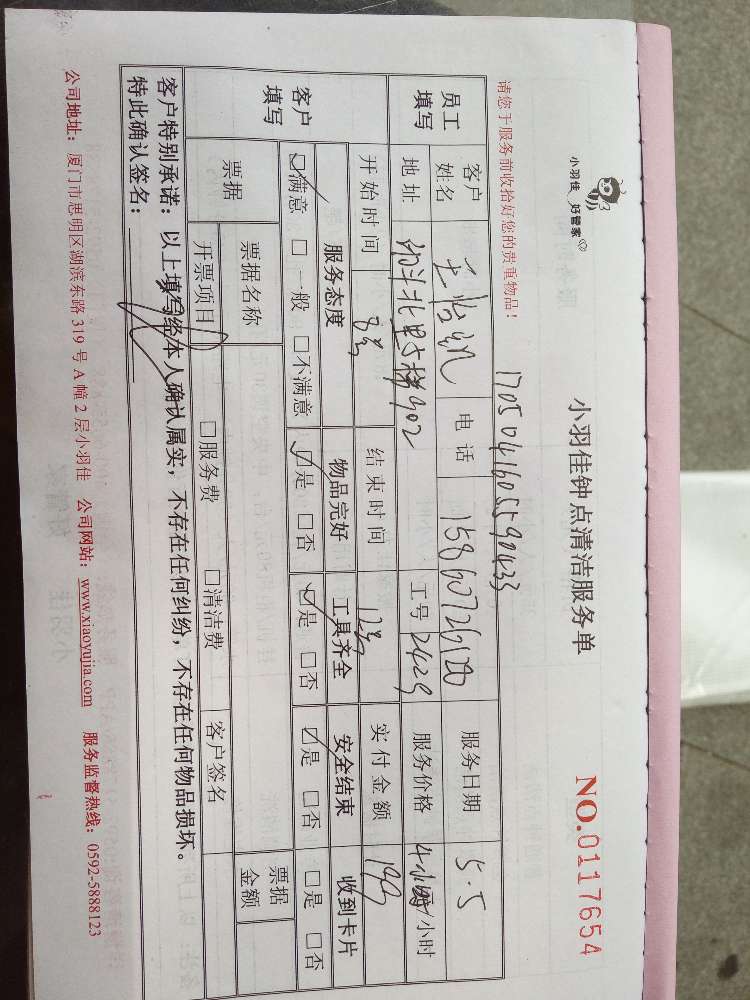 小羽佳 好管家
小羽佳钟点清洁服务单
NO.0117654
请您于服务前收拾好您的贵重物品！
1705041605590433
员工填写 客户姓名 电话 15860726120 服务日期 5.5
地址 北里 902 工号 2429 服务价格 4小时/小时
开始时间 8点 结束时间 12点 实付金额 199
客户填写 服务态度 物品完好 工具齐全 安全结束 收到卡片
☑满意 □一般 □不满意 ☑是 □否 ☑是 □否 ☑是 □否 □是 □否
票据 票据名称 票据金额
开票项目 □服务费 □清洁费 客户签名
客户特别承诺：以上填写经本人确认属实，不存在任何纠纷，不存在任何物品损坏。
特此确认签名：
公司地址：厦门市思明区湖滨东路 319 号 A 幢 2 层小羽佳 公司网站：www.xiaoyujia.com 服务监督热线：0592-5888123